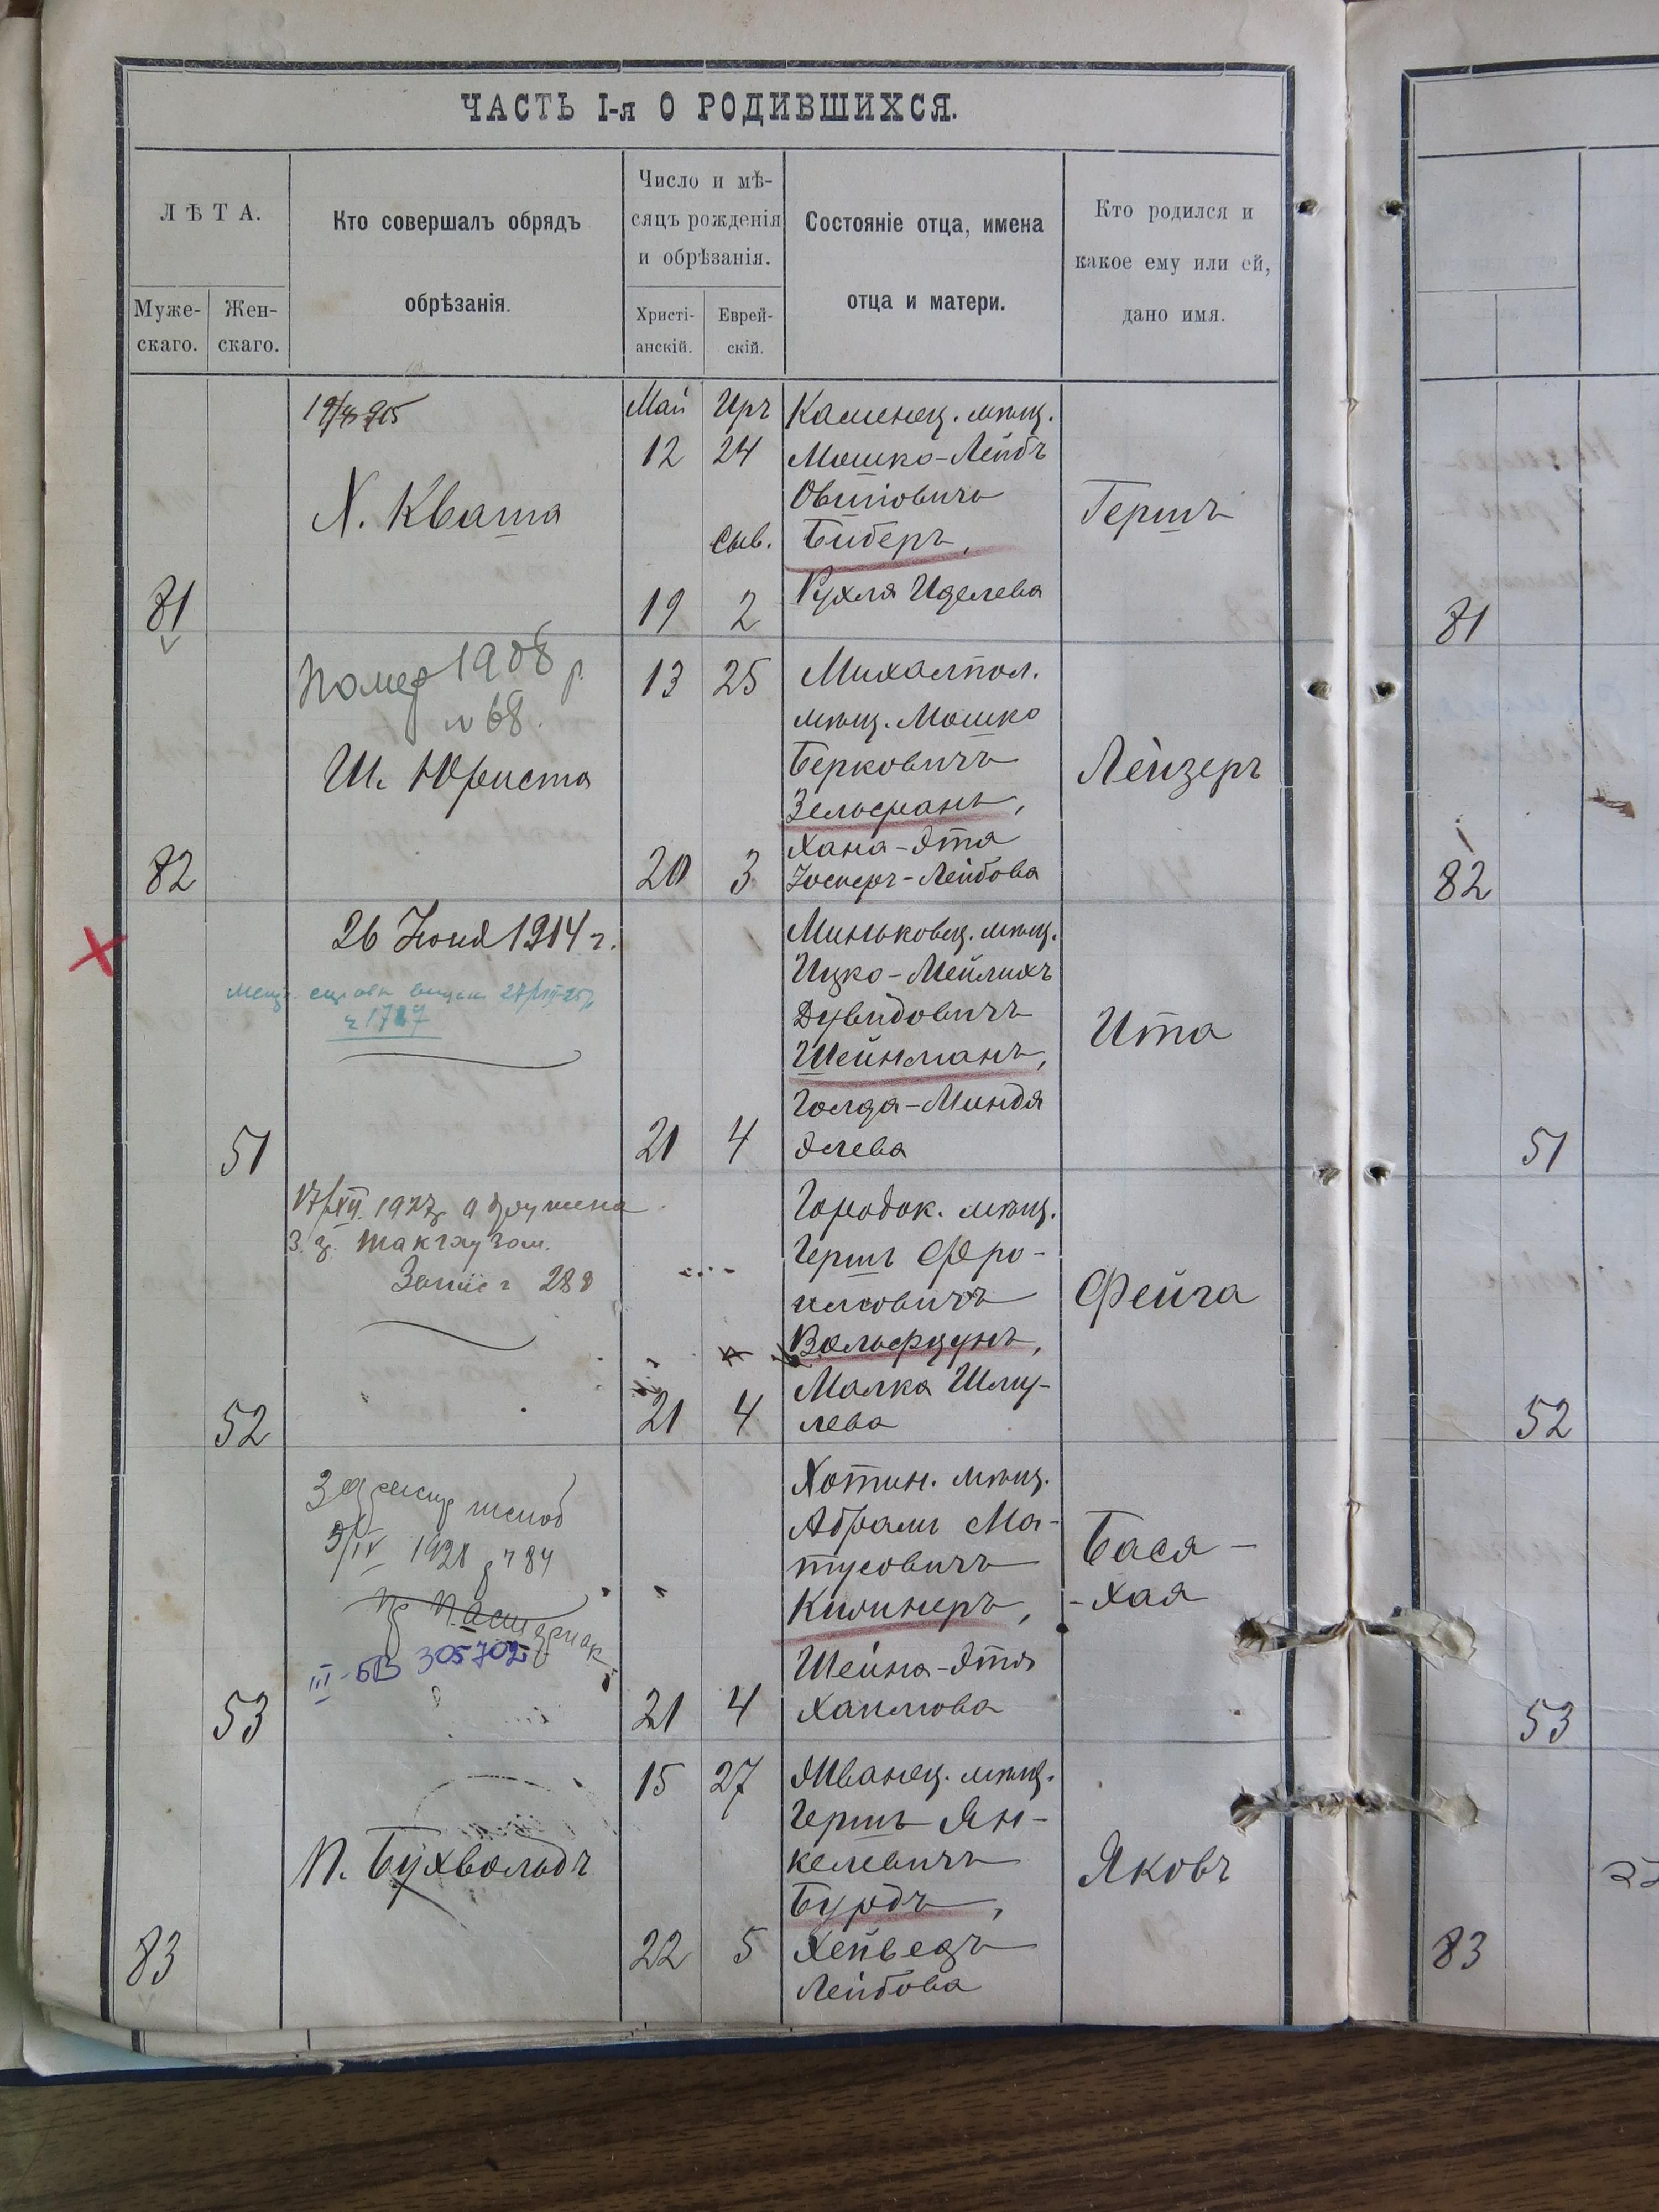 ЧАСТЬ I-я О РОДИВШИХСЯ.
ЛѢТА.
Муже-
скаго.
Жен-
скаго.
Кто совершалъ обрядъ
обрѣзанія.
Число и мѣ-
сяцъ рожденія
и обрѣзанія.
Христі-
анскій.
Еврей-
скій.
Состояніе отца, имена
отца и матери.
Кто родился и
какое ему или ей,
дано имя.
Май Иръ
12 24
Х. Кваша
Сив.
81
19 2
Каменец. мѣщ.
Мошко-Лейбъ
Овшіовичъ
Биберъ,
Рухля Иделева
Гершъ
81
Помер 1908 р.
№ 68.
Ш. Юриста
13 25
82
20 3
Михалпол.
мѣщ. Мошко
Берковичъ
Зельцманъ,
Хана-Эта
Іосперъ-Лейбова
Лейзеръ
82
26 Іюня 1914 г.
1727
51
21 4
Миньковец. мѣщ.
Ицко-Мейлихъ
Дувидовичъ
Шейнманъ,
Голда-Миндя
Элева
Ита
51
17/XII. 1927
288
52
21 4
Городок. мѣщ.
Гершъ Фро-
имовичъ
Вольфцунъ,
Малка Шму-
лева
Фейга
52
1928 84
III-БВ 305702
53
21 4
Хотин. мѣщ.
Абрамъ Ма-
тусовичъ
Кишнеръ,
Шейна-Этя
Хаимова
Бася-
-Хая
53
15 27
П. Бухвольдъ
83
22 5
Жванец. мѣщ.
Гершъ Ян-
келевичъ
Бурдъ,
Хейведъ
Лейбова
Яковъ
83